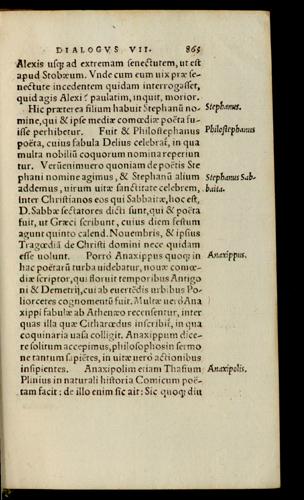 DIALOGVS VII. 865
Alexis usq; ad extremam senectutem, ut est
apud Stobæum. Vnde cum eum uix præ se-
nectute incedentem quidam interrogasset,
quid agis Alexi? paulatim, inquit, morior.
Hic præterea filium habuit Stephanũ no-
mine, qui & ipse mediæ comœdiæ poëta fu-
isse perhibetur. Fuit & Philostephanus
poëta, cuius fabula Delius celebraꞇ, in qua
multa nobiliũ coquorum nomina reperiun
tur. Verũenimuero quoniam de poëtis Ste
phani nomine agimus, & Stephanũ alium
addemus, uirum uitæ sanctitate celebrem,
Inter Christianos eos qui Sabbaitæ, hoc est,
D. Sabbæ sectatores dicti sunt, qui & poëta
fuit, ut Græci scribunt, cuius diem festum
agunt quinto calend. Nouembris, & ipsius
Tragœdiã de Christi domini nece quidam
esse uolunt. Porrò Anaxippus quoq; in
hac poëtarũ turba uidebatur, nouæ comœ-
diæ scriptor, qui floruit temporibus Antigo
ni & Demetrij, cui ab euertẽdis urbibus Po
liorcetes cognomentũ fuit. Multæ uerò Ana
xippi fabulæ ab Athenæo recensentur, inter
quas illa quæ Citharœdus inscribiꞇ, in qua
coquinaria uasa colligit. Anaxippum dice-
re solitum accepimus, philosophos in sermo
ne tantum sapiẽtes, in uitæ uerò actionibus
insipientes. Anaxipolim etiam Thasium
Plinius in naturali historia Comicum poë-
tam facit: de illo enim sic ait: Sic quoq; diu
Stephanus.
Philostephanus
Stephanus Sab-
baita.
Anaxippus.
Anaxipolis.